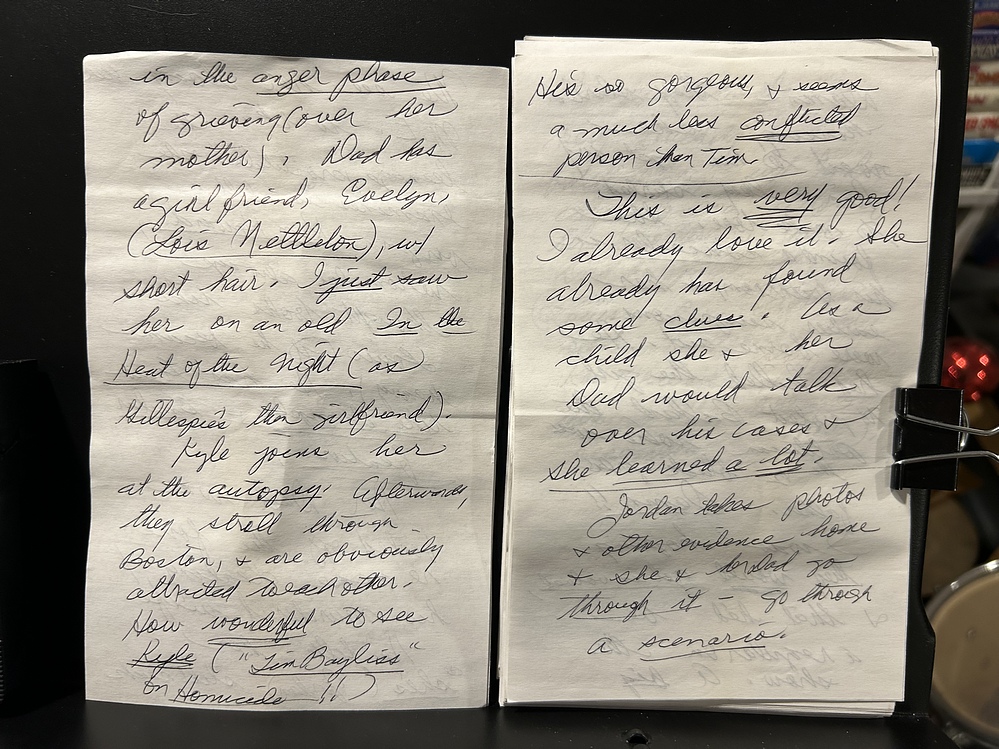 in the anger phase
of grieving (over her
mother). Dad has
a girlfriend, Evelyn,
(Lois Nettleton), w/
short hair. I just saw
her on an old In the
Heat of the Night (as
Gillespie's then girlfriend).
Kyle joins her
at the autopsy. Afterwards,
they stroll through
Boston, & are obviously
attracted to each other.
How wonderful to see
Kyle ("Tim Bayliss"
on Homicide !!)
He's so gorgeous, & seems
a much less conflicted
person than Tim.
This is very good!
I already love it. She
already has found
some clues. As a
child she & her
Dad would talk
over his cases &
she learned a lot.
Jordan takes photos
& other evidence home
& she & her Dad go
through it - go through
a scenario.